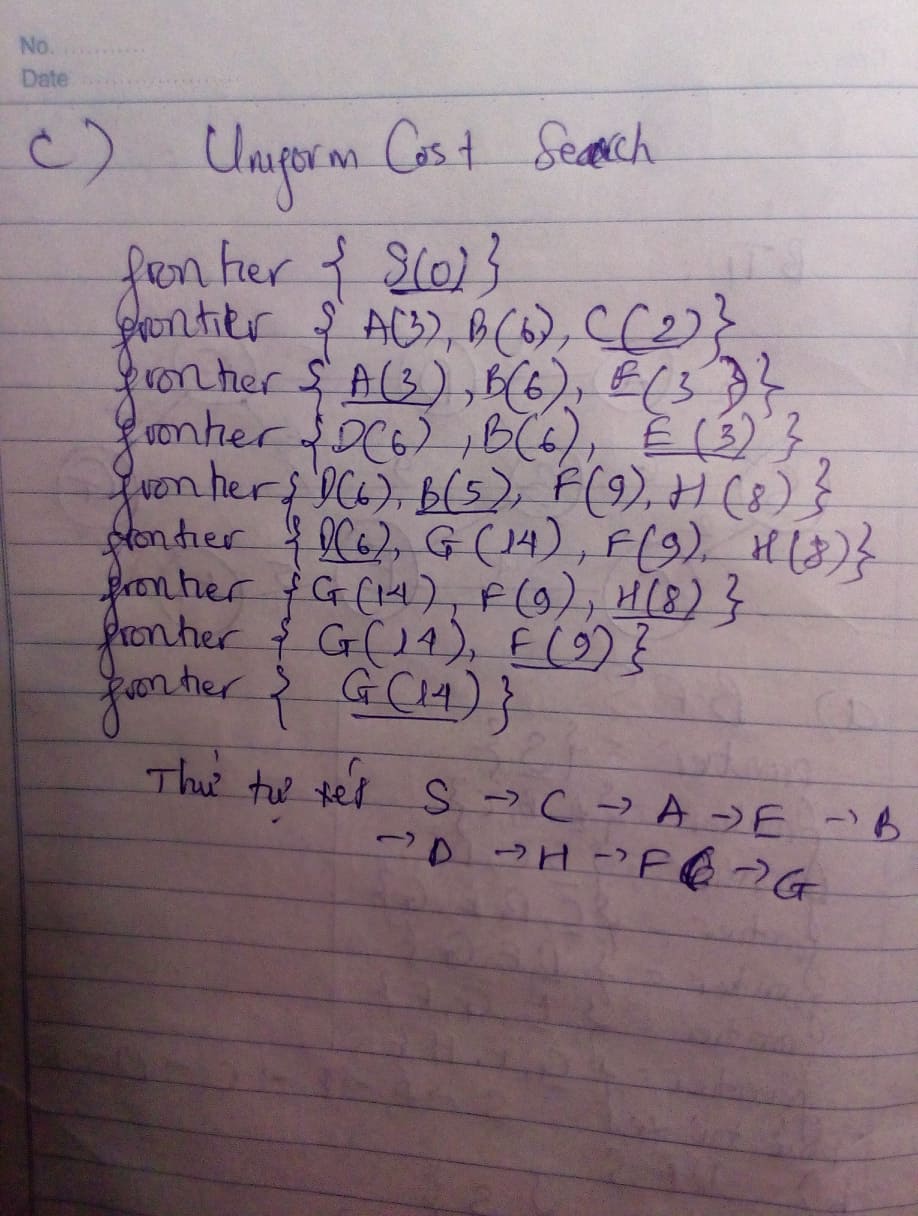 No.
Date
c) Uniform Cost Search
frontier { S(0) }
frontier { A(3), B(6), C(2) }
frontier { A(3), B(6), E(3) }
frontier { D(6), B(6), E(3) }
frontier { D(6), B(5), F(9), H(8) }
frontier { D(6), G(14), F(9), H(8) }
frontier { G(14), F(9), H(8) }
frontier { G(14), F(9) }
frontier { G(14) }
Thứ tự xét S → C → A → E → B
→ D → H → F → G